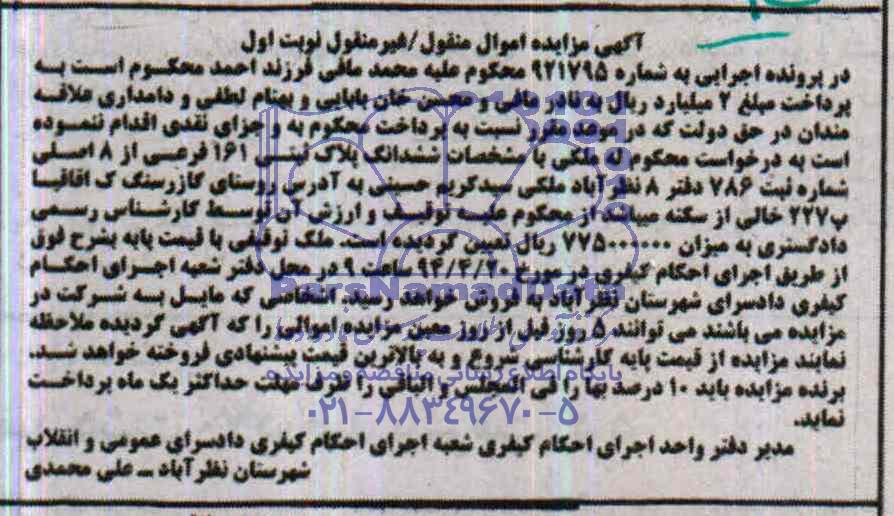 آگهی مزایده اموال منقول /غیرمنقول نوبت اول
در پرونده اجرایی به شماره ۹۲۱۷۹۵ محکوم علیه محمد مافی فرزند احمد محکوم است به
پرداخت مبلغ ۲ میلیارد ریال به نادر مافی و محسن خان بابایی و بهنام لطفی و دامداری علاقه
مندان در حق دولت که در موعد مقرر نسبت به پرداخت محکوم به و جزای نقدی اقدام ننموده
است به درخواست محکوم له ملکی با مشخصات ششدانگ پلاک ثبتی ۱۶۱ فرعی از ۸ اصلی
شماره ثبت ۷۸۶ دفتر ۸ نظرآباد ملکی سیدکریم حسینی به آدرس روستای گازرسنگ ک اقاقیا
پ۲۲۷ خالی از سکنه میباشد از محکوم علیه توقیف و ارزش آن توسط کارشناس رسمی
دادگستری به میزان ۷۷۵۰۰۰۰۰۰ ریال تعیین گردیده است. ملک توقیفی با قیمت پایه بشرح فوق
از طریق اجرای احکام کیفری در مورخ ۹۴/۴/۲۰ ساعت ۹ در محل دفتر شعبه اجرای احکام
کیفری دادسرای شهرستان نظرآباد به فروش خواهد رسید. اشخاصی که مایل به شرکت در
مزایده می باشند می توانند ۵ روز قبل از روز معین مزایده اموالی را که آگهی گردیده ملاحظه
نمایند مزایده از قیمت پایه کارشناسی شروع و به بالاترین قیمت پیشنهادی فروخته خواهد شد.
برنده مزایده باید ۱۰ درصد بها را فی المجلس و الباقی را ظرف مهلت حداکثر یک ماه پرداخت
نماید.
مدیر دفتر واحد اجرای احکام کیفری شعبه اجرای احکام کیفری دادسرای عمومی و انقلاب
شهرستان نظرآباد – علی محمدی
ParsNamadData
پایگاه اطلاع رسانی مناقصه و مزایده
۰۲۱-۸۸۳۴۹۶۷۰-۵